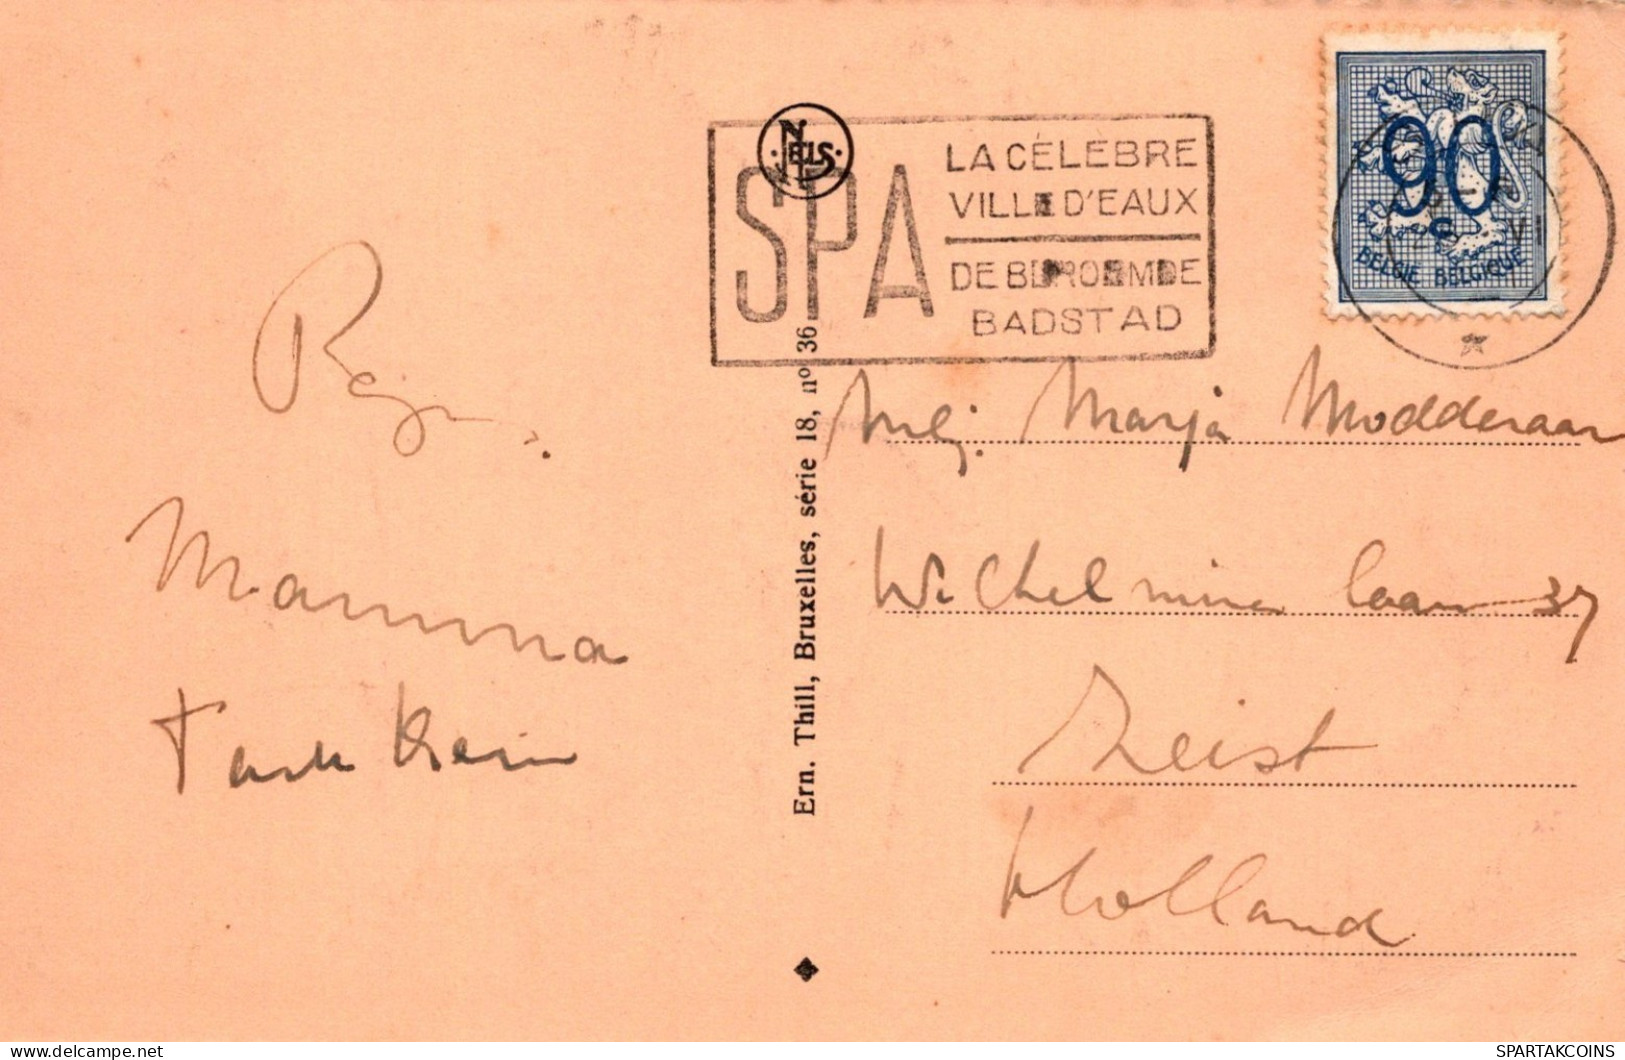 NELS
SPA
LA CÉLEBRE
VILLE D'EAUX
DE BEROEMDE
BADSTAD
90
C
BELGIE BELGIQUE
Mamma
Ern. Thill, Bruxelles, série 18, nº 36
Mej. Marja Modderaar
Wilhelmina laan 37
Zeist
Holland
delcampe.net
SPARTAKCOINS